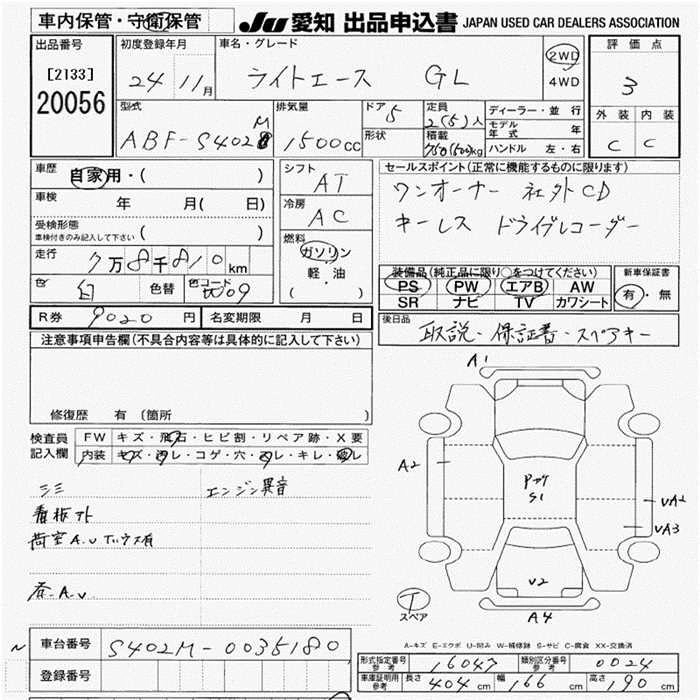 車内保管・守衛保管 JU 愛知 出品申込書 JAPAN USED CAR DEALERS ASSOCIATION
出品番号
[2133]
20056
初度登録年月
24 11月
車名・グレード
ライトエース GL
2WD
4WD
評価点
3
外装 内装
C C
型式
ABF-S402M
排気量
1500cc
ドア 5
形状
定員
2(5)人
積載
750(500)kg
ディーラー・並行
モデル年式 年
ハンドル 左・右
車歴
自家用・( )
車検 年 月( 日)
受検形態
車検付きのみ記入して下さい ( )
走行 7万8千810km
色 白 色替 色コード W09
シフト
AT
冷房
AC
燃料
ガソリン
軽・油
( )
セールスポイント(正常に機能するものに限ります)
ワンオーナー 社外CD
キーレス ドライブレコーダー
装備品(純正品に限り○をつけてください)
PS PW エアB AW
SR ナビ TV カワシート
新車保証書
有・無
R券 9020円 名変期限 月 日
後日品
取説・保証書・スペアキー
注意事項申告欄(不具合内容等は具体的に記入して下さい)
修復歴 有(箇所
検査員
記入欄
FW キズ・飛石・ヒビ割・リペア跡・X要
内装 キズ・汚レ・コゲ・穴・凹レ・キレ・破レ
エンジン異音
看板アト
荷室A.U
A1
A2
S1
UA2
UA3
U2
A4
T
スペア
A-キズ E-エクボ U-凹み W-補修跡 S-サビ C-腐食 XX-交換済
車台番号 S402M-0035180
登録番号
形式指定番号 参考 16047
類別区分番号 参考 0024
車庫証明用 参考 長さ 404cm 幅 166cm 高さ 190cm